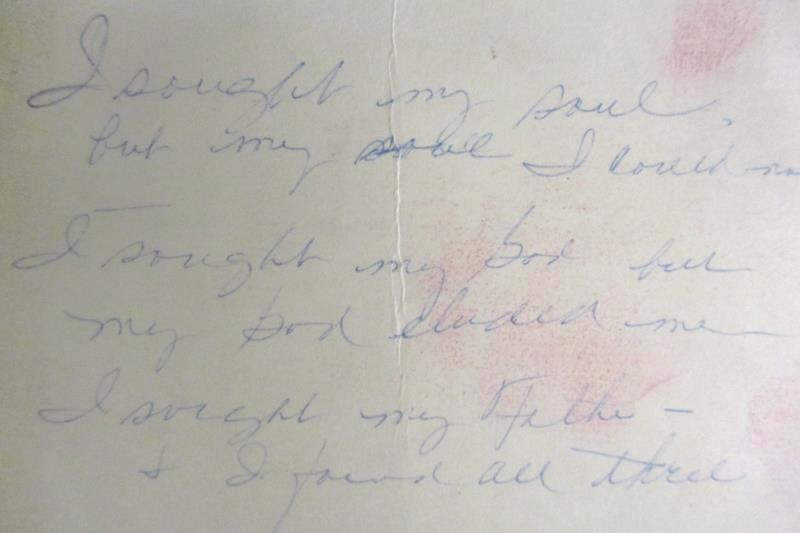 I sought my soul,
but my soul I could no
I sought my God but
my God eluded me
I sought my Father -
& I found all three